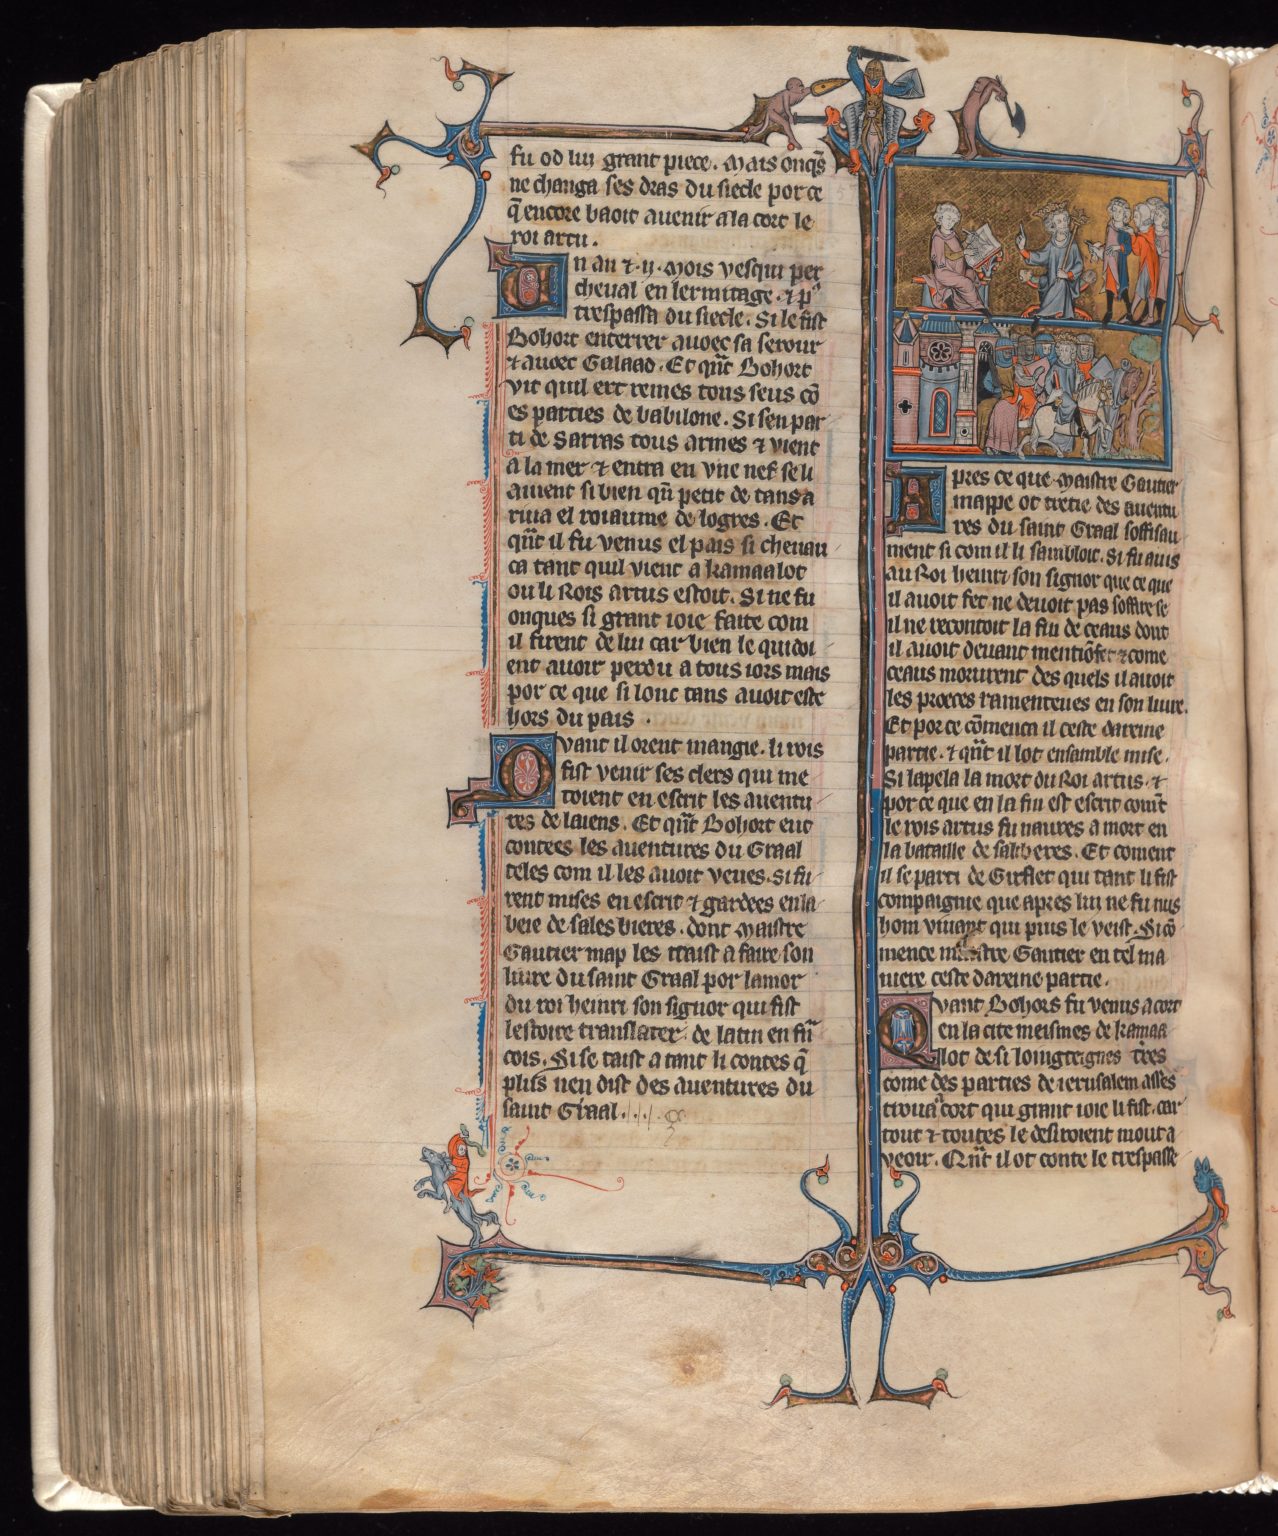 fu od lui grant piece. Mais onqs̃
ne changa ses dras du siecle por ce
q̃ encore baoit auenir a la cort le
roi artu.
Un an ⁊ .ij. mois vesqui per
cheual en lermitage. ⁊ pᵃ
trespassa du siecle. Si le fist
Bohort enterrer auoec sa serour
⁊ auoec Galaad. Et qñt Bohort
vit quil ert remes tous seus cõ
es parties de babilone. Si sen par
ti de Sarras tous armes ⁊ vient
a la mer ⁊ entra en vne nef se li
auient si bien qũ petit de tans a
riua el roiaume de logres. Et
qñt il fu venus el païs si cheuau
ca tant quil vient a kamaalot
ou li Rois artus estoit. Si ne fu
onques si grant ioie faite com
il firent de lui car bien le quidoi
ent auoir perdu a tous iors mais
por ce que si lonc tans auoit este
hors du païs.
Quant il orent mangie. li rois
fist venir ses clers qui me
toient en escrit les auentu
res de laiens. Et qñt Bohort eut
contees les auentures du Graal
teles com il les auoit veues. si fu
rent mises en escrit ⁊ gardees en la
beie de sales bieres. dont Maistre
Gautier map les traist a faire son
liure du saint Graal por lamor
du roi henri son signor qui fist
lestoire translater de latin en frᵃ̃
cois. Si se taist a tant li contes q̃
plus nen dist des auentures du
saint Graal...
Apres ce que Maistre Gautier
mappe ot tretie des auentu
res du saint Graal soffisau
ment si com il li sambloit. Si fu auis
au Roi henri son signor que ce que
il auoit fet ne deuoit pas soffire se
il ne recontoit la fin de ceaus dont
il auoit deuant mentiõ fet ⁊ come
ceaus morurent des quels il auoit
les proeces ramenteues en son liure.
Et por ce cõmenca il ceste dareine
partie. ⁊ qñt il lot ensamble mise.
Si lapela la mort du Roi artus. ⁊
por ce que en la fin est escrit comt̃
le rois artus fu naures a mort en
la bataille de salsberes. Et coment
il se parti de Girflet qui tant li fist
compaignie que apres lui ne fu nus
hom viuant qui plus le veist. Si cõ
mence maistre Gautier en tel ma
niere ceste dareine partie.
Quant Bohors fu venus a cort
en la cite meismes de kamaa
lot de si loingteignes t̃res
come des parties de ierusalem asses
trouua cort qui grant ioie li fist. car
tout ⁊ toutes le desiroient mout a
veoir. Qñt il ot conte le trespasse